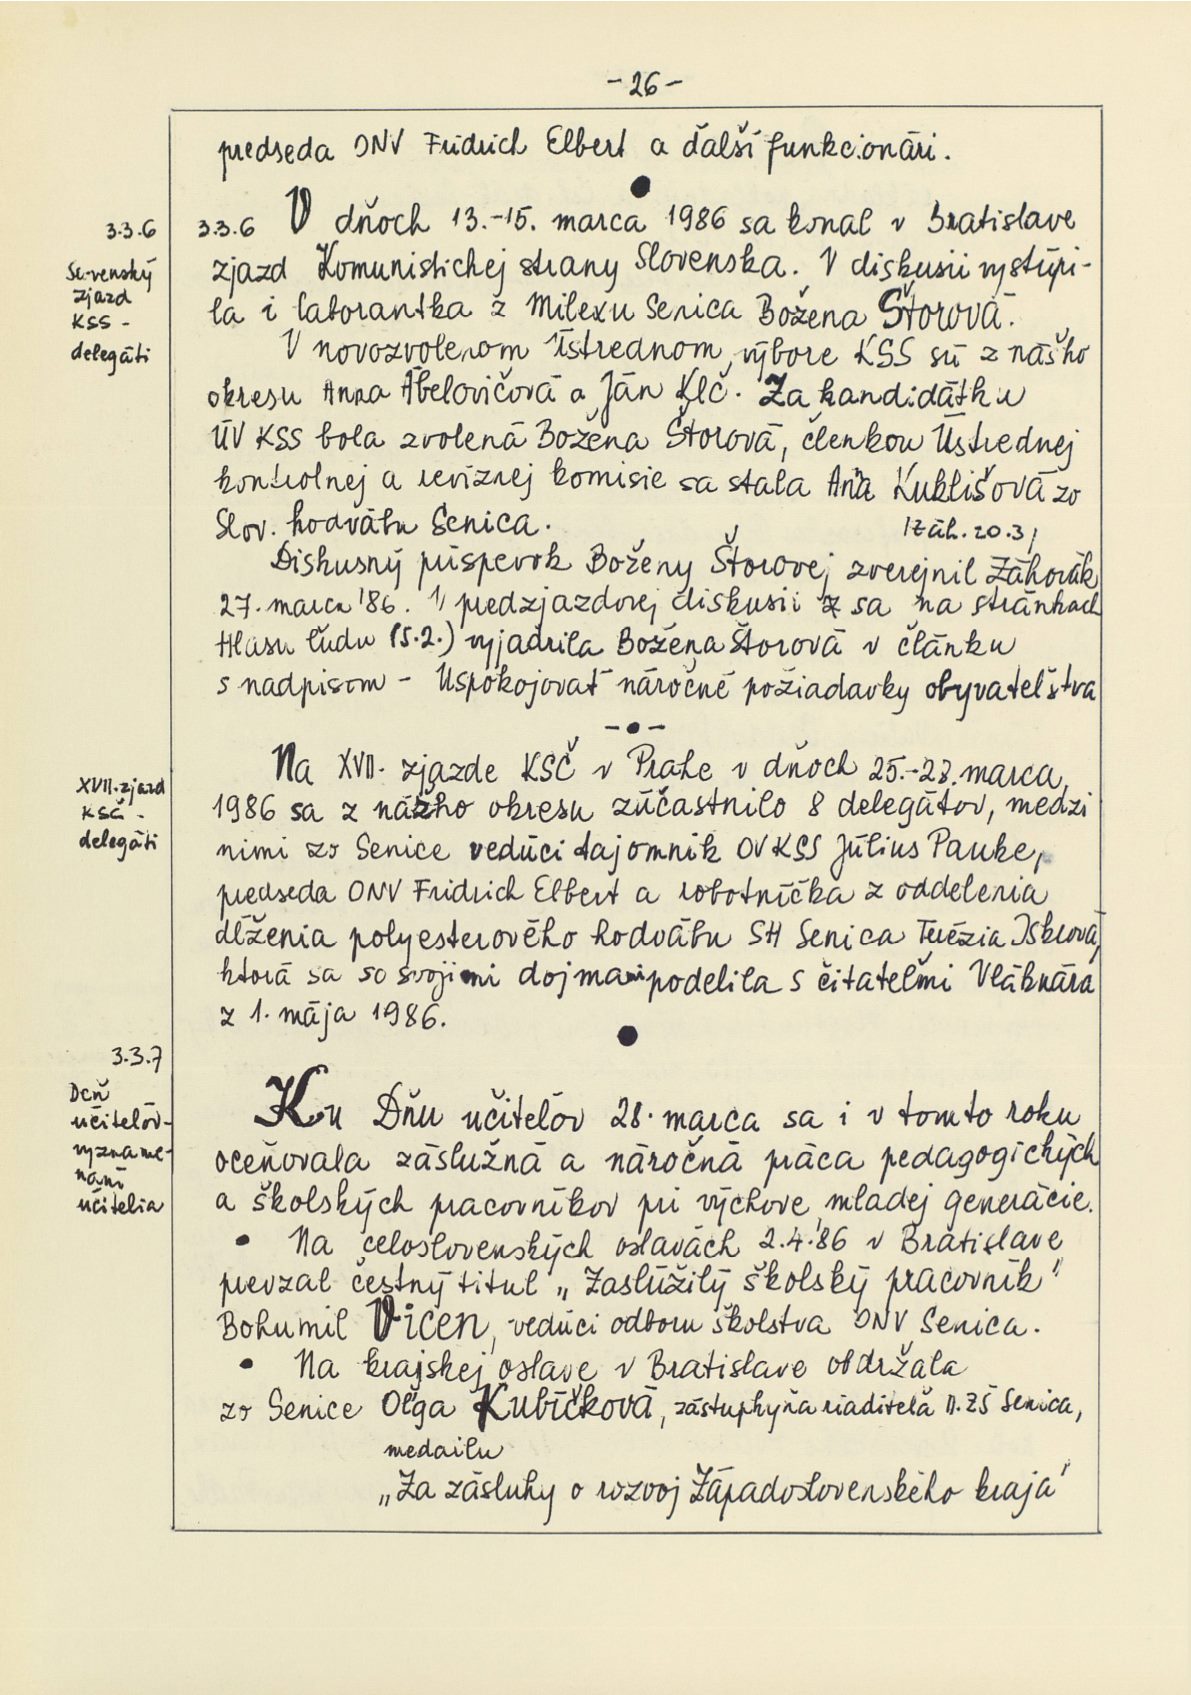 - 26 -
predseda ONV Fridrich Elbert a ďalší funkcionári.
3.3.6
Slovenský
zjazd
KSS -
delegáti
3.3.6 V dňoch 13.-15. marca 1986 sa konal v Bratislave
zjazd Komunistickej strany Slovenska. V diskusii vystúpi-
la i laborantka z Milexu Senica Božena Štorová.
V novozvolenom Ústrednom výbore KSS sú z nášho
okresu Anna Abelovičová a Ján Klč. Za kandidátku
ÚV KSS bola zvolená Božena Štorová, členkou Ústrednej
kontrolnej a revíznej komisie sa stala Anna Kuklišová zo
Slov. hodvábu Senica. /Záh. 20.3/
Diskusný príspevok Boženy Štorovej zverejnil Záhorák
27. marca '86. V predzjazdovej diskusii sa na stránkach
Hlasu ľudu (5.2.) vyjadrila Božena Štorová v článku
s nadpisom - Uspokojovať náročné požiadavky obyvateľstva
- • -
XVII. zjazd
KSČ -
delegáti
Na XVII. zjazde KSČ v Prahe v dňoch 25.-28. marca
1986 sa z nášho okresu zúčastnilo 8 delegátov, medzi
nimi zo Senice vedúci tajomník OV KSS Július Pauke,
predseda ONV Fridrich Elbert a robotníčka z oddelenia
dĺženia polyesterového hodvábu SH Senica Terézia Iskrová,
ktorá sa so svojimi dojmami podelila s čitateľmi Vláknára
z 1. mája 1986.
3.3.7
Deň
učiteľov-
vyzname-
naní
učitelia
Ku Dňu učiteľov 28. marca sa i v tomto roku
oceňovala záslužná a náročná práca pedagogických
a školských pracovníkov pri výchove mladej generácie.
• Na celoslovenských oslavách 2.4.'86 v Bratislave
prevzal čestný titul „Zaslúžilý školský pracovník"
Bohumil Vicen, vedúci odboru školstva ONV Senica.
• Na krajskej oslave v Bratislave obdržala
zo Senice Oľga Kubíčková, zástupkyňa riaditeľa II. ZŠ Senica,
medailu
„Za zásluhy o rozvoj Západoslovenského kraja"